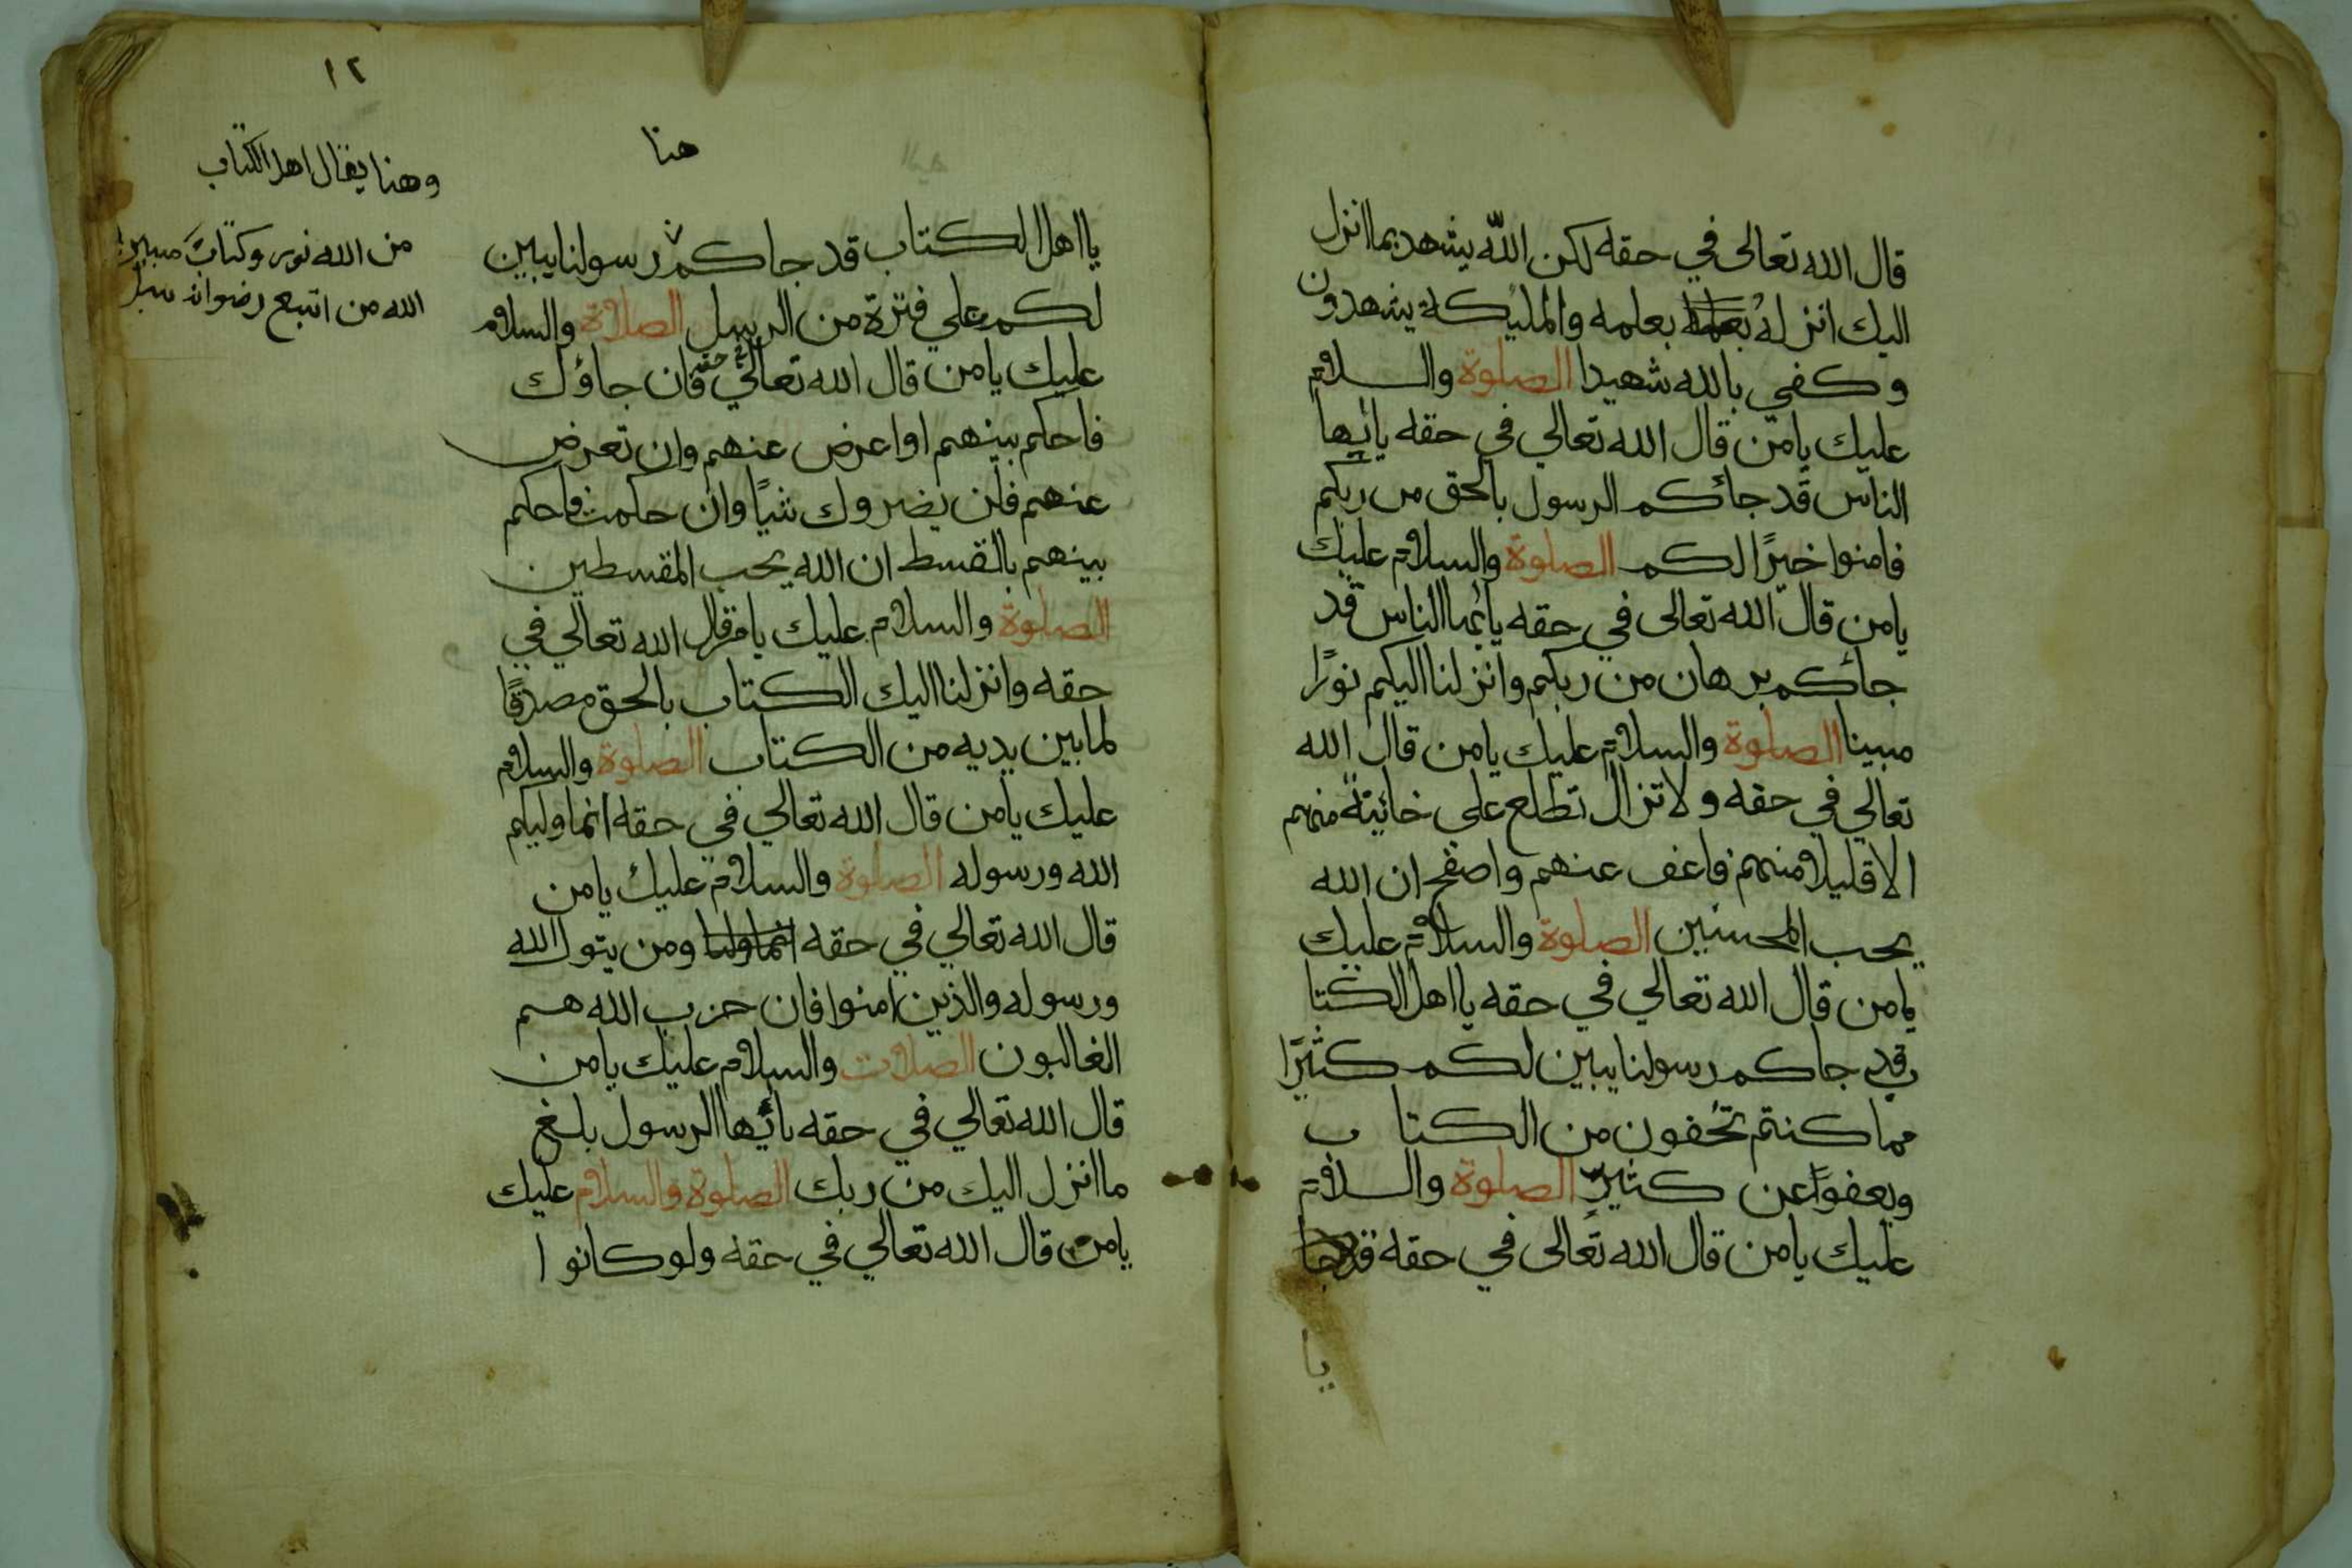 قال الله تعالى في حقه لكن الله يشهد بما انزل
اليك انزله بعلمه بعلمه والمليكة يشهدون
وكفي بالله شهيدا الصلوة والسلام
عليك يامن قال الله تعالي في حقه يايها
الناس قد جائكم الرسول بالحق من ربكم
فامنوا خيرًا لكم الصلوة والسلام عليك
يامن قال الله تعالى في حقه يائها الناس قد
جائكم برهان من ربكم وانزلنا اليكم نورًا
مبينا الصلوة والسلام عليك يامن قال الله
تعالي في حقه ولا تزال تطلع على خائنة منهم
الا قليلا منهم فاعف عنهم واصفح ان الله
يحب المحسنين الصلوة والسلام عليك
يامن قال الله تعالي في حقه يا اهل الكتا
ب قد جاكم رسولنا يبين لكم كثيرًا
مما كنتم تخفون من الكتا ب
ويعفوا عن كثيرٍ الصلوة والسلام
عليك يامن قال الله تعالى في حقه قد جا
يا
١٢
هنا
يا اهل الكتاب قد جاكم رسولنا يبين
لكم علي فترة من الرسل الصلاة والسلام
عليك يامن قال الله تعالي في حقه فان جاؤك
فاحكم بينهم او اعرض عنهم وان تعرض
عنهم فلن يضروك شيًا وان حكمت فاحكم
بينهم بالقسط ان الله يحب المقسطين
الصلوة والسلام عليك يامن قال الله تعالي في
حقه وانزلنا اليك الكتاب بالحق مصدقًا
لما بين يديه من الكتاب الصلوة والسلام
عليك يامن قال الله تعالي في حقه انما وليكم
الله ورسوله الصلوة والسلام عليك يامن
قال الله تعالي في حقه انما ومن يتول الله
ورسوله والذين امنوا فان حزب الله هم
الغالبون الصلات والسلام عليك يامن
قال الله تعالي في حقه يائيها الرسول بلغ
ما انزل اليك من ربك الصلوة والسلام عليك
يامن قال الله تعالي في حقه ولو كانوا
وهنا يقال اهل الكتاب
من الله نور وكتاب مبين
الله من اتبع رضوانه سبل